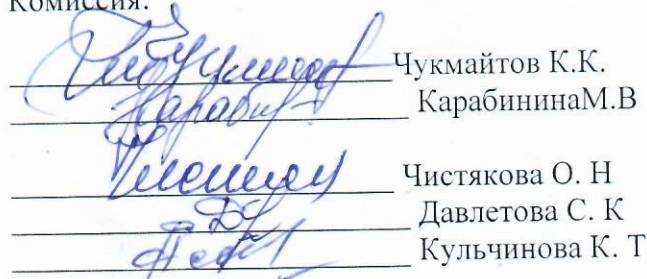 Комиссия:
Чукмайтов К.К.
КарабининаМ.В
Чистякова О. Н
Давлетова С. К
Кульчинова К. Т